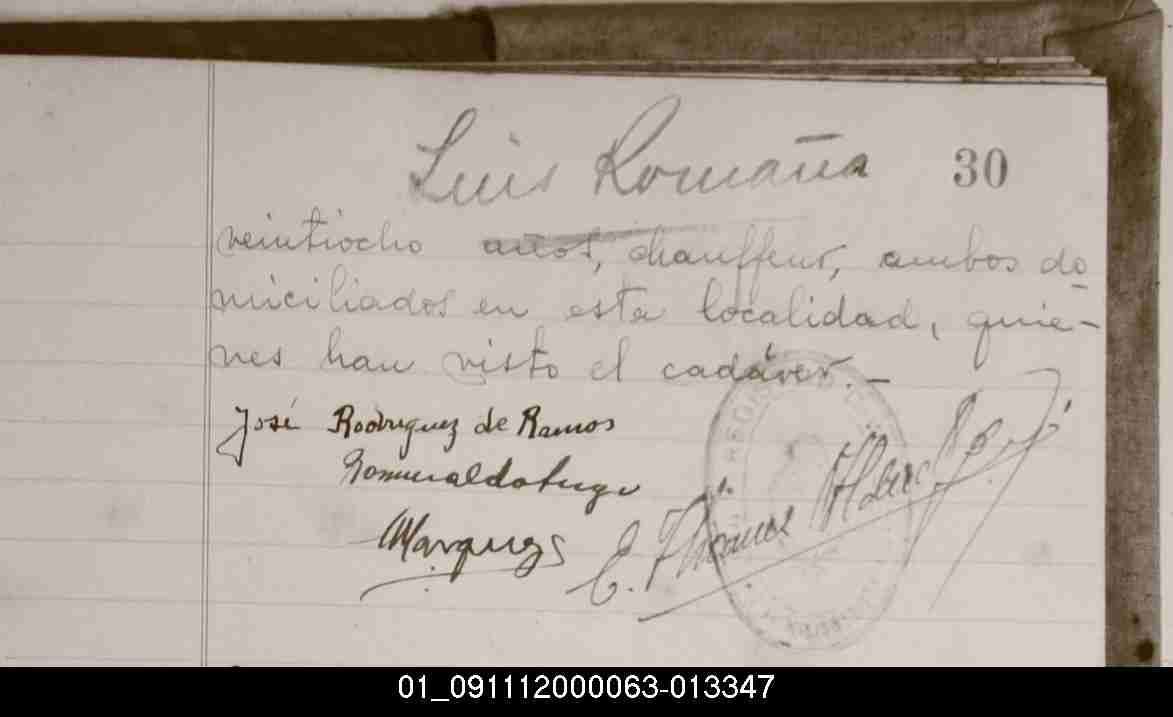 Luis Romaña 30
veintiocho años, chauffeur, ambos do
miciliados en esta localidad, quie-
nes han visto el cadáver.-
José Rodriguez de Ramos
Romualdo Lugo
Marquez
E. Thomas
REGISTRO
01_091112000063-013347